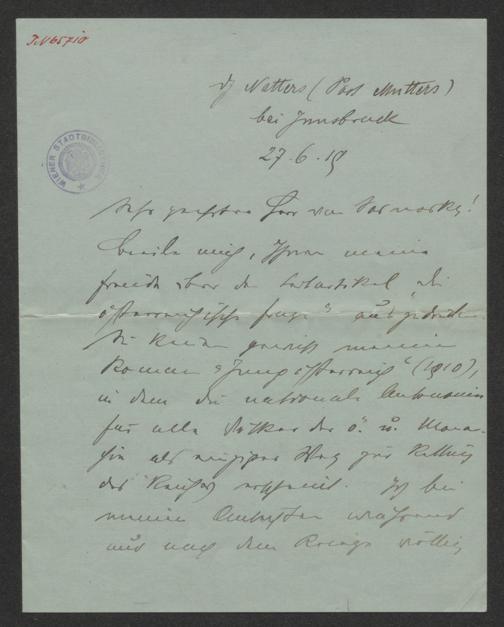 I.N 65710
WIENER STADTBIBLIOTHEK
Natters (Post Mutters)
bei Innsbruck
27.6.19
Sehr geehrter Herr von
beeile mich, Ihnen meine
Freude über den Leitartikel „die
österreichische Frage“ auszudrücken
Sie kennen gewiß meinen
Roman „Jungösterreich“ (1910),
in dem die nationale Autonomie
für alle Völker der ö. u. Monar-
chie als einziger Weg zur Rettung
des Reiches erscheint. Ich bin
meinen während
und nach dem Kriege völlig